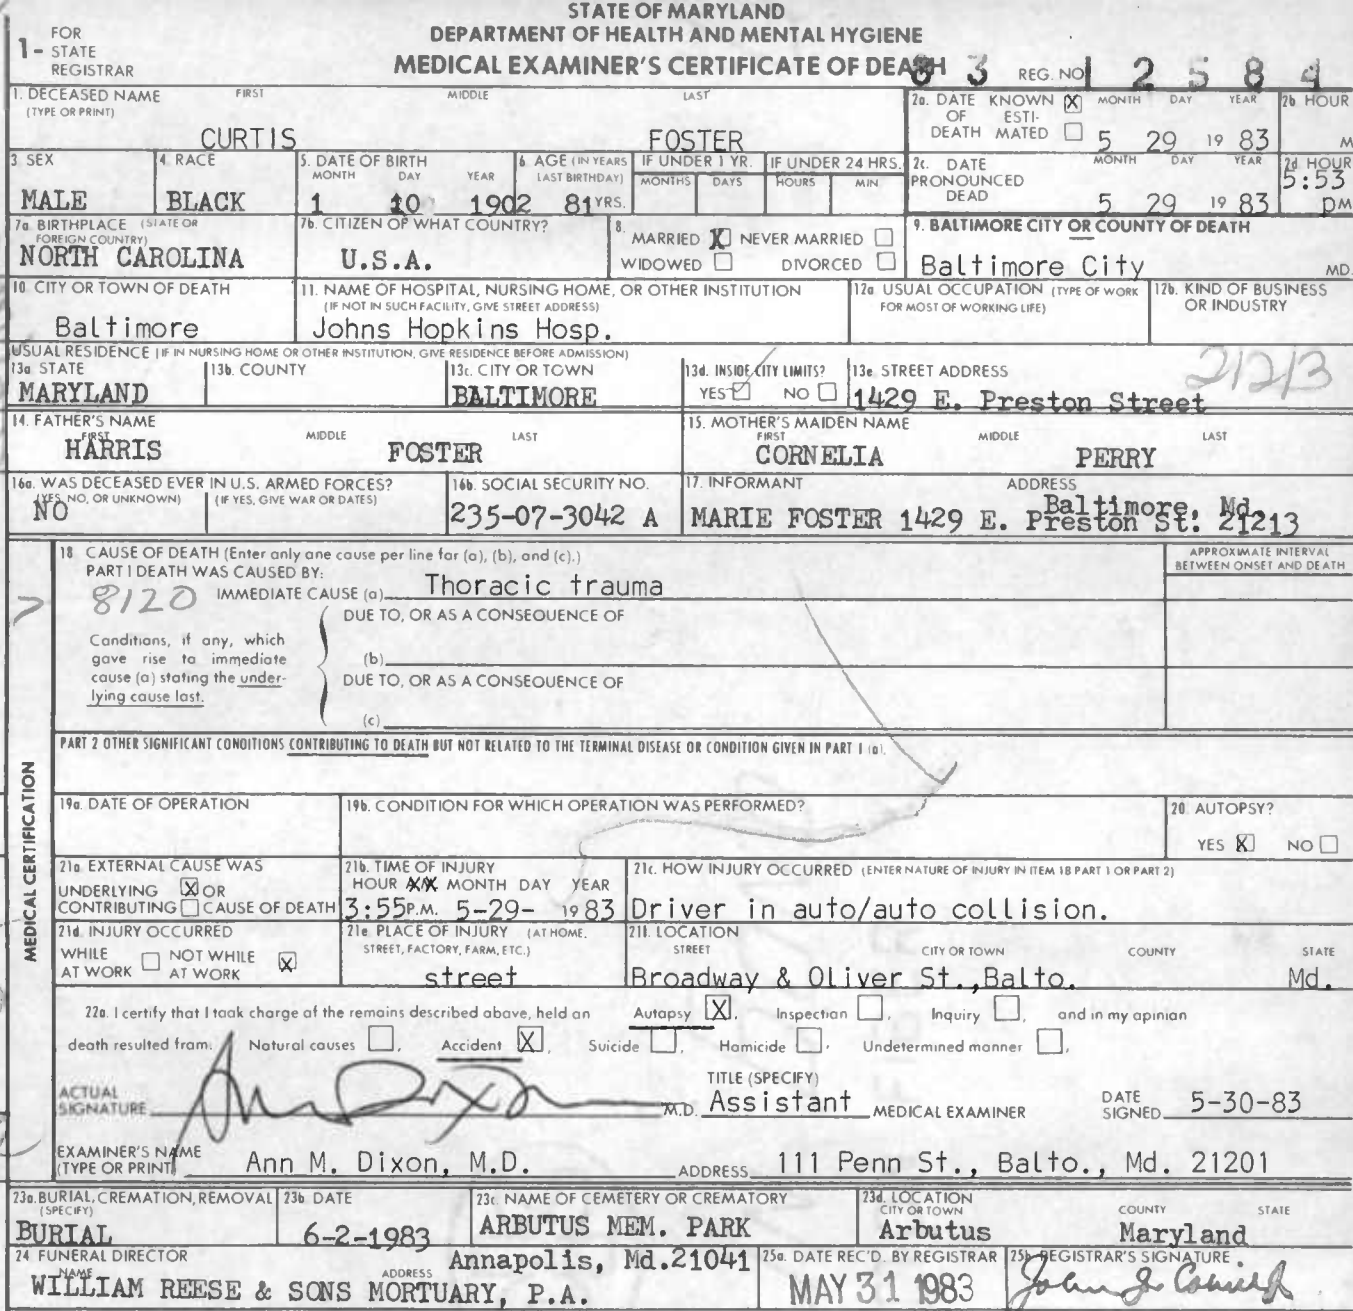 STATE OF MARYLAND
DEPARTMENT OF HEALTH AND MENTAL HYGIENE
MEDICAL EXAMINER'S CERTIFICATE OF DEATH
1- FOR STATE REGISTRAR
83 REG. NO 12584
1. DECEASED NAME (TYPE OR PRINT) FIRST MIDDLE LAST
CURTIS FOSTER
2a. DATE OF DEATH KNOWN X ESTI-MATED MONTH DAY YEAR
5 29 1983
2b HOUR M
3 SEX
MALE
4. RACE
BLACK
5. DATE OF BIRTH MONTH DAY YEAR
1 10 1902
6. AGE (IN YEARS LAST BIRTHDAY)
81 YRS.
IF UNDER 1 YR. MONTHS DAYS
IF UNDER 24 HRS. HOURS MIN
2c. DATE PRONOUNCED DEAD MONTH DAY YEAR
5 29 1983
2d HOUR
5:53 pM
7a. BIRTHPLACE (STATE OR FOREIGN COUNTRY)
NORTH CAROLINA
7b. CITIZEN OF WHAT COUNTRY?
U.S.A.
8. MARRIED X NEVER MARRIED
WIDOWED DIVORCED
9. BALTIMORE CITY OR COUNTY OF DEATH
Baltimore City MD.
10. CITY OR TOWN OF DEATH
Baltimore
11. NAME OF HOSPITAL, NURSING HOME, OR OTHER INSTITUTION
(IF NOT IN SUCH FACILITY, GIVE STREET ADDRESS)
Johns Hopkins Hosp.
12a. USUAL OCCUPATION (TYPE OF WORK FOR MOST OF WORKING LIFE)
12b. KIND OF BUSINESS OR INDUSTRY
USUAL RESIDENCE (IF IN NURSING HOME OR OTHER INSTITUTION, GIVE RESIDENCE BEFORE ADMISSION)
13a STATE
MARYLAND
13b. COUNTY
13c. CITY OR TOWN
BALTIMORE
13d. INSIDE CITY LIMITS?
YES NO
13e. STREET ADDRESS
21213
1429 E. Preston Street
14. FATHER'S NAME FIRST MIDDLE LAST
HARRIS FOSTER
15. MOTHER'S MAIDEN NAME FIRST MIDDLE LAST
CORNELIA PERRY
16a. WAS DECEASED EVER IN U.S. ARMED FORCES?
(YES, NO, OR UNKNOWN) (IF YES, GIVE WAR OR DATES)
NO
16b. SOCIAL SECURITY NO.
235-07-3042 A
17. INFORMANT ADDRESS
Baltimore, Md.
MARIE FOSTER 1429 E. Preston St. 21213
MEDICAL CERTIFICATION
18 CAUSE OF DEATH (Enter only one cause per line for (a), (b), and (c).)
PART I DEATH WAS CAUSED BY:
8120 IMMEDIATE CAUSE (a) Thoracic trauma
APPROXIMATE INTERVAL BETWEEN ONSET AND DEATH
DUE TO, OR AS A CONSEQUENCE OF
Conditions, if any, which
gave rise to immediate
cause (a) stating the under-
lying cause last.
(b)
DUE TO, OR AS A CONSEQUENCE OF
(c)
PART 2 OTHER SIGNIFICANT CONDITIONS CONTRIBUTING TO DEATH BUT NOT RELATED TO THE TERMINAL DISEASE OR CONDITION GIVEN IN PART I (a).
19a. DATE OF OPERATION
19b. CONDITION FOR WHICH OPERATION WAS PERFORMED?
20. AUTOPSY?
YES X NO
21a EXTERNAL CAUSE WAS
UNDERLYING X OR
CONTRIBUTING CAUSE OF DEATH
21b. TIME OF INJURY
HOUR XX MONTH DAY YEAR
3:55P.M. 5-29- 1983
21c. HOW INJURY OCCURRED (ENTER NATURE OF INJURY IN ITEM 18 PART 1 OR PART 2)
Driver in auto/auto collision.
21d INJURY OCCURRED
WHILE AT WORK NOT WHILE AT WORK X
21e PLACE OF INJURY (AT HOME, STREET, FACTORY, FARM, ETC.)
street
21f. LOCATION
STREET CITY OR TOWN COUNTY STATE
Broadway & Oliver St., Balto. Md.
22a. I certify that I took charge of the remains described above, held an Autopsy X, Inspection , Inquiry , and in my opinion
death resulted from. Natural causes , Accident X, Suicide , Homicide , Undetermined manner ,
ACTUAL SIGNATURE Ann Dixon M.D.
TITLE (SPECIFY)
Assistant MEDICAL EXAMINER
DATE SIGNED 5-30-83
EXAMINER'S NAME (TYPE OR PRINT) Ann M. Dixon, M.D. ADDRESS 111 Penn St., Balto., Md. 21201
23a. BURIAL, CREMATION, REMOVAL (SPECIFY)
BURIAL
23b DATE
6-2-1983
23c. NAME OF CEMETERY OR CREMATORY
ARBUTUS MEM. PARK
23d. LOCATION
CITY OR TOWN COUNTY STATE
Arbutus Maryland
24 FUNERAL DIRECTOR
NAME ADDRESS
Annapolis, Md.21041
WILLIAM REESE & SONS MORTUARY, P.A.
25a. DATE REC'D. BY REGISTRAR
MAY 31 1983
25b REGISTRAR'S SIGNATURE
John J.